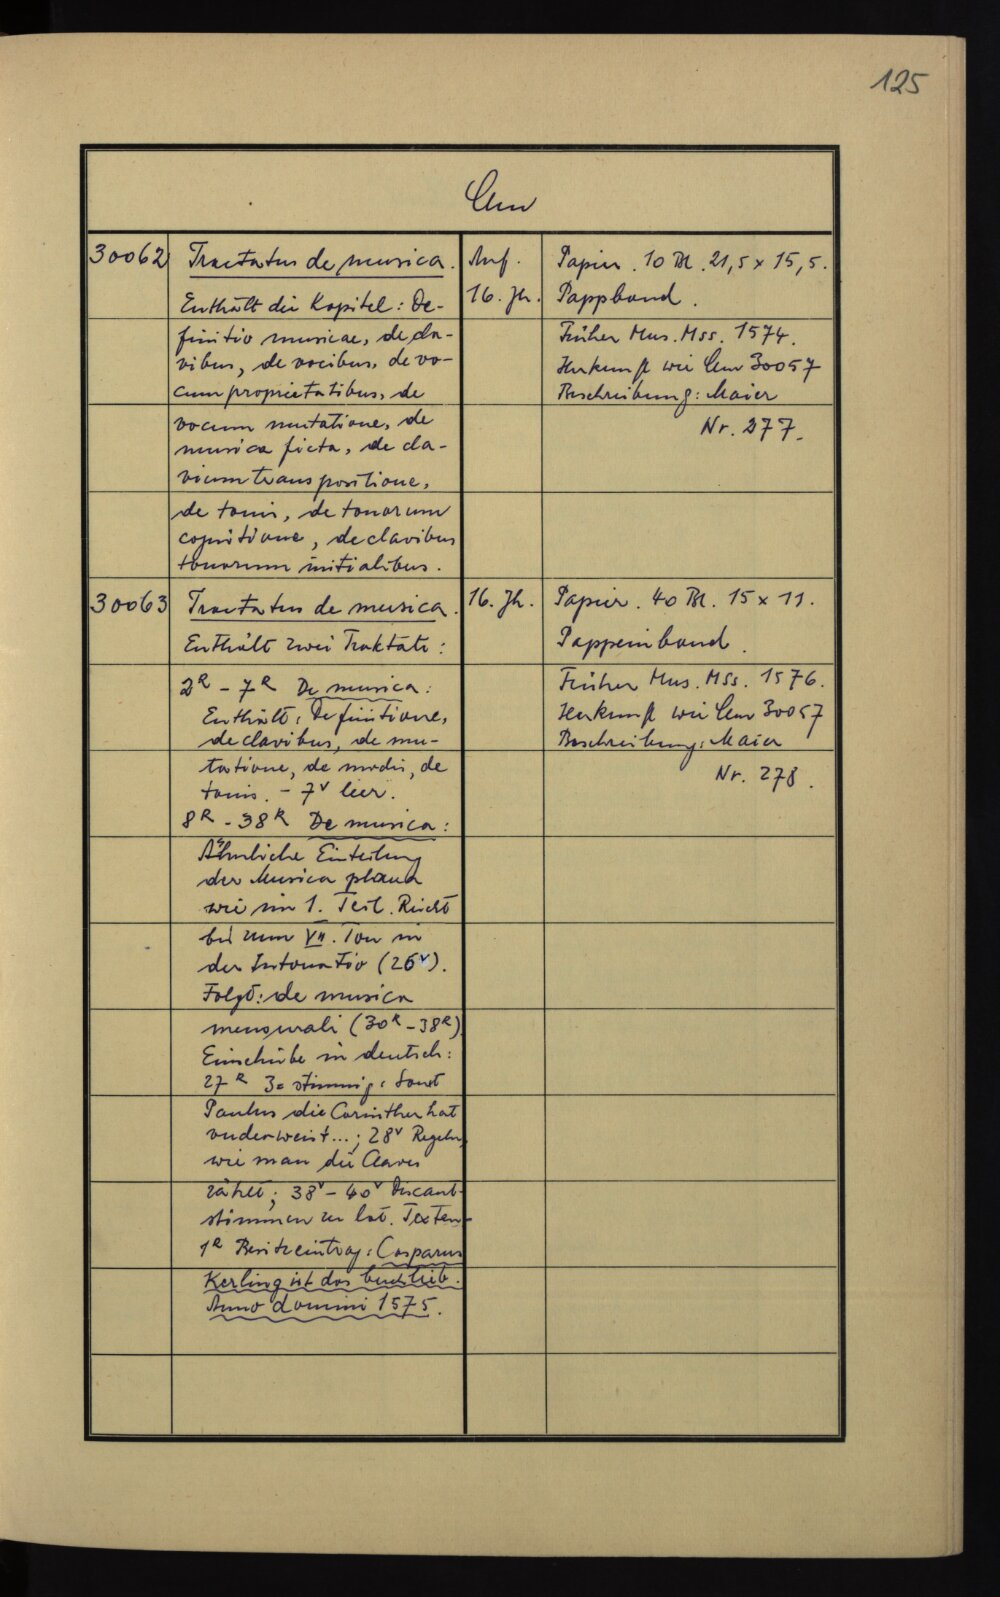 125
Clm
30062
Tractatus de musica.
Enthält die Kapitel: De-
finitio musicae, de cla-
vibus, de vocibus, de vo-
cum proprietatibus, de
vocum mutatione, de
musica ficta, de cla-
vium transpositione,
de tonis, de tonorum
cognitione, de clavibus
tonorum initialibus.
Anf.
16. Jh.
Papier. 10 Bl. 21,5 x 15,5.
Pappband.
Früher Mus. Mss. 1574.
Herkunft wie Clm 30057
Beschreibung: Maier
Nr. 277.
30063
Tractatus de musica.
Enthält zwei Traktate:
2R - 7R De musica:
Enthält: Definitione,
de clavibus, de mu-
tatione, de modis, de
tonis. - 7v leer.
8R - 38R De musica:
Ähnliche Einteilung
der Musica plana
wie im 1. Teil. Reicht
bis zum VII. Ton in
der Intonatio (26v).
Folgt: de musica
mensurali (30R - 38R)
Einschübe in deutsch:
27R 3=stimmig: Sant
Paulus die Corinther hat
underweist...; 28v Regeln,
wie man die Claves
zählet; 38v - 40v Discant-
stimmen zu lat. Texten
1R Besitzeintrag: Casparus
Kerling ist das buch lieb.
Anno domini 1575.
16. Jh.
Papier. 40 Bl. 15 x 11.
Pappeinband.
Früher Mus. Mss. 1576.
Herkunft wie Clm 30057
Beschreibung: Maier
Nr. 278.